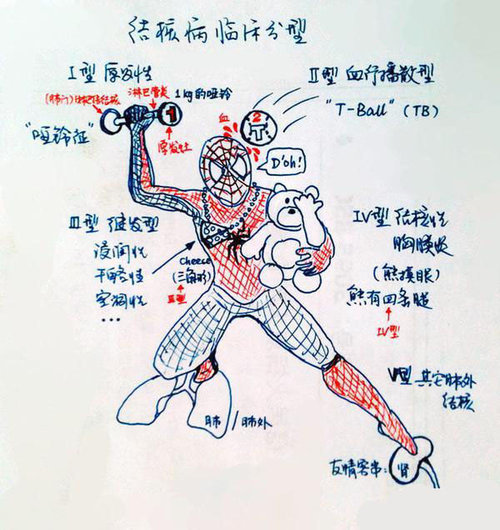 结核病临床分型
I型 原发性
淋巴管炎
(肺门)淋巴结结核
1kg的哑铃
"哑铃征"
1
原发灶
II型 血行播散型
"T-Ball" (TB)
血
2
T
D'oh!
III型 继发型
浸润性
干酪性
空洞性
...
Cheese
(三角形)
III型
IV型 结核性
胸膜炎
(熊摸眼)
熊有四条腿
IV型
V型 其它肺外
结核
肺/肺外
友情客串:
肾